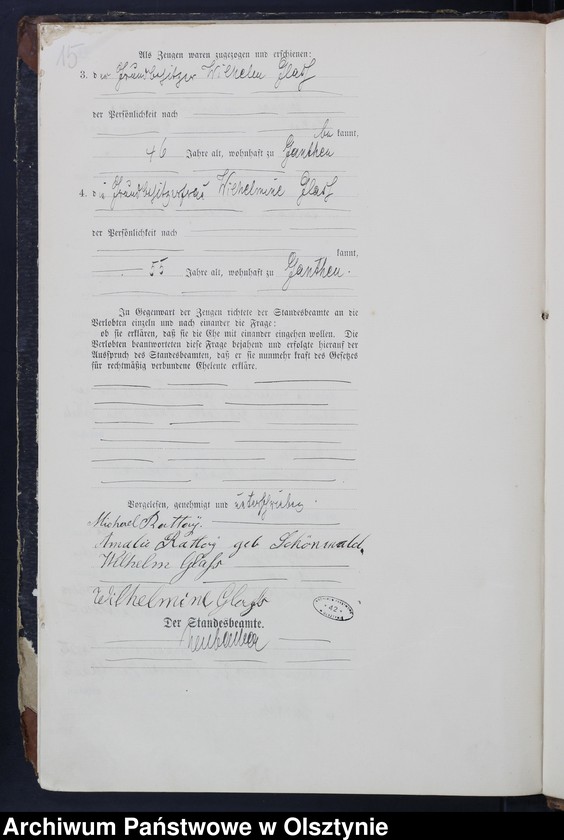 15
Als Zeugen waren zugezogen und erschienen:
3. der Grundbesitzer Wilhelm Glaß
der Persönlichkeit nach
be kannt,
46 Jahre alt, wohnhaft zu Ganthen
4. die Grundbesitzerfrau Wilhelmine Glaß
der Persönlichkeit nach
kannt,
55 Jahre alt, wohnhaft zu Ganthen.
In Gegenwart der Zeugen richtete der Standesbeamte an die
Verlobten einzeln und nach einander die Frage:
ob sie erklären, daß sie die Ehe mit einander eingehen wollen. Die
Verlobten beantworteten diese Frage bejahend und erfolgte hierauf der
Ausspruch des Standesbeamten, daß er sie nunmehr kraft des Gesetzes
für rechtmäßig verbundene Eheleute erkläre.
Vorgelesen, genehmigt und unterschrieben
Michael Rattoÿ.
Amalie Rattoÿ geb Schönwald.
Wilhelm Glaß
Wilhelmine Glaß
Der Standesbeamte.
42
Archiwum Państwowe w Olsztynie